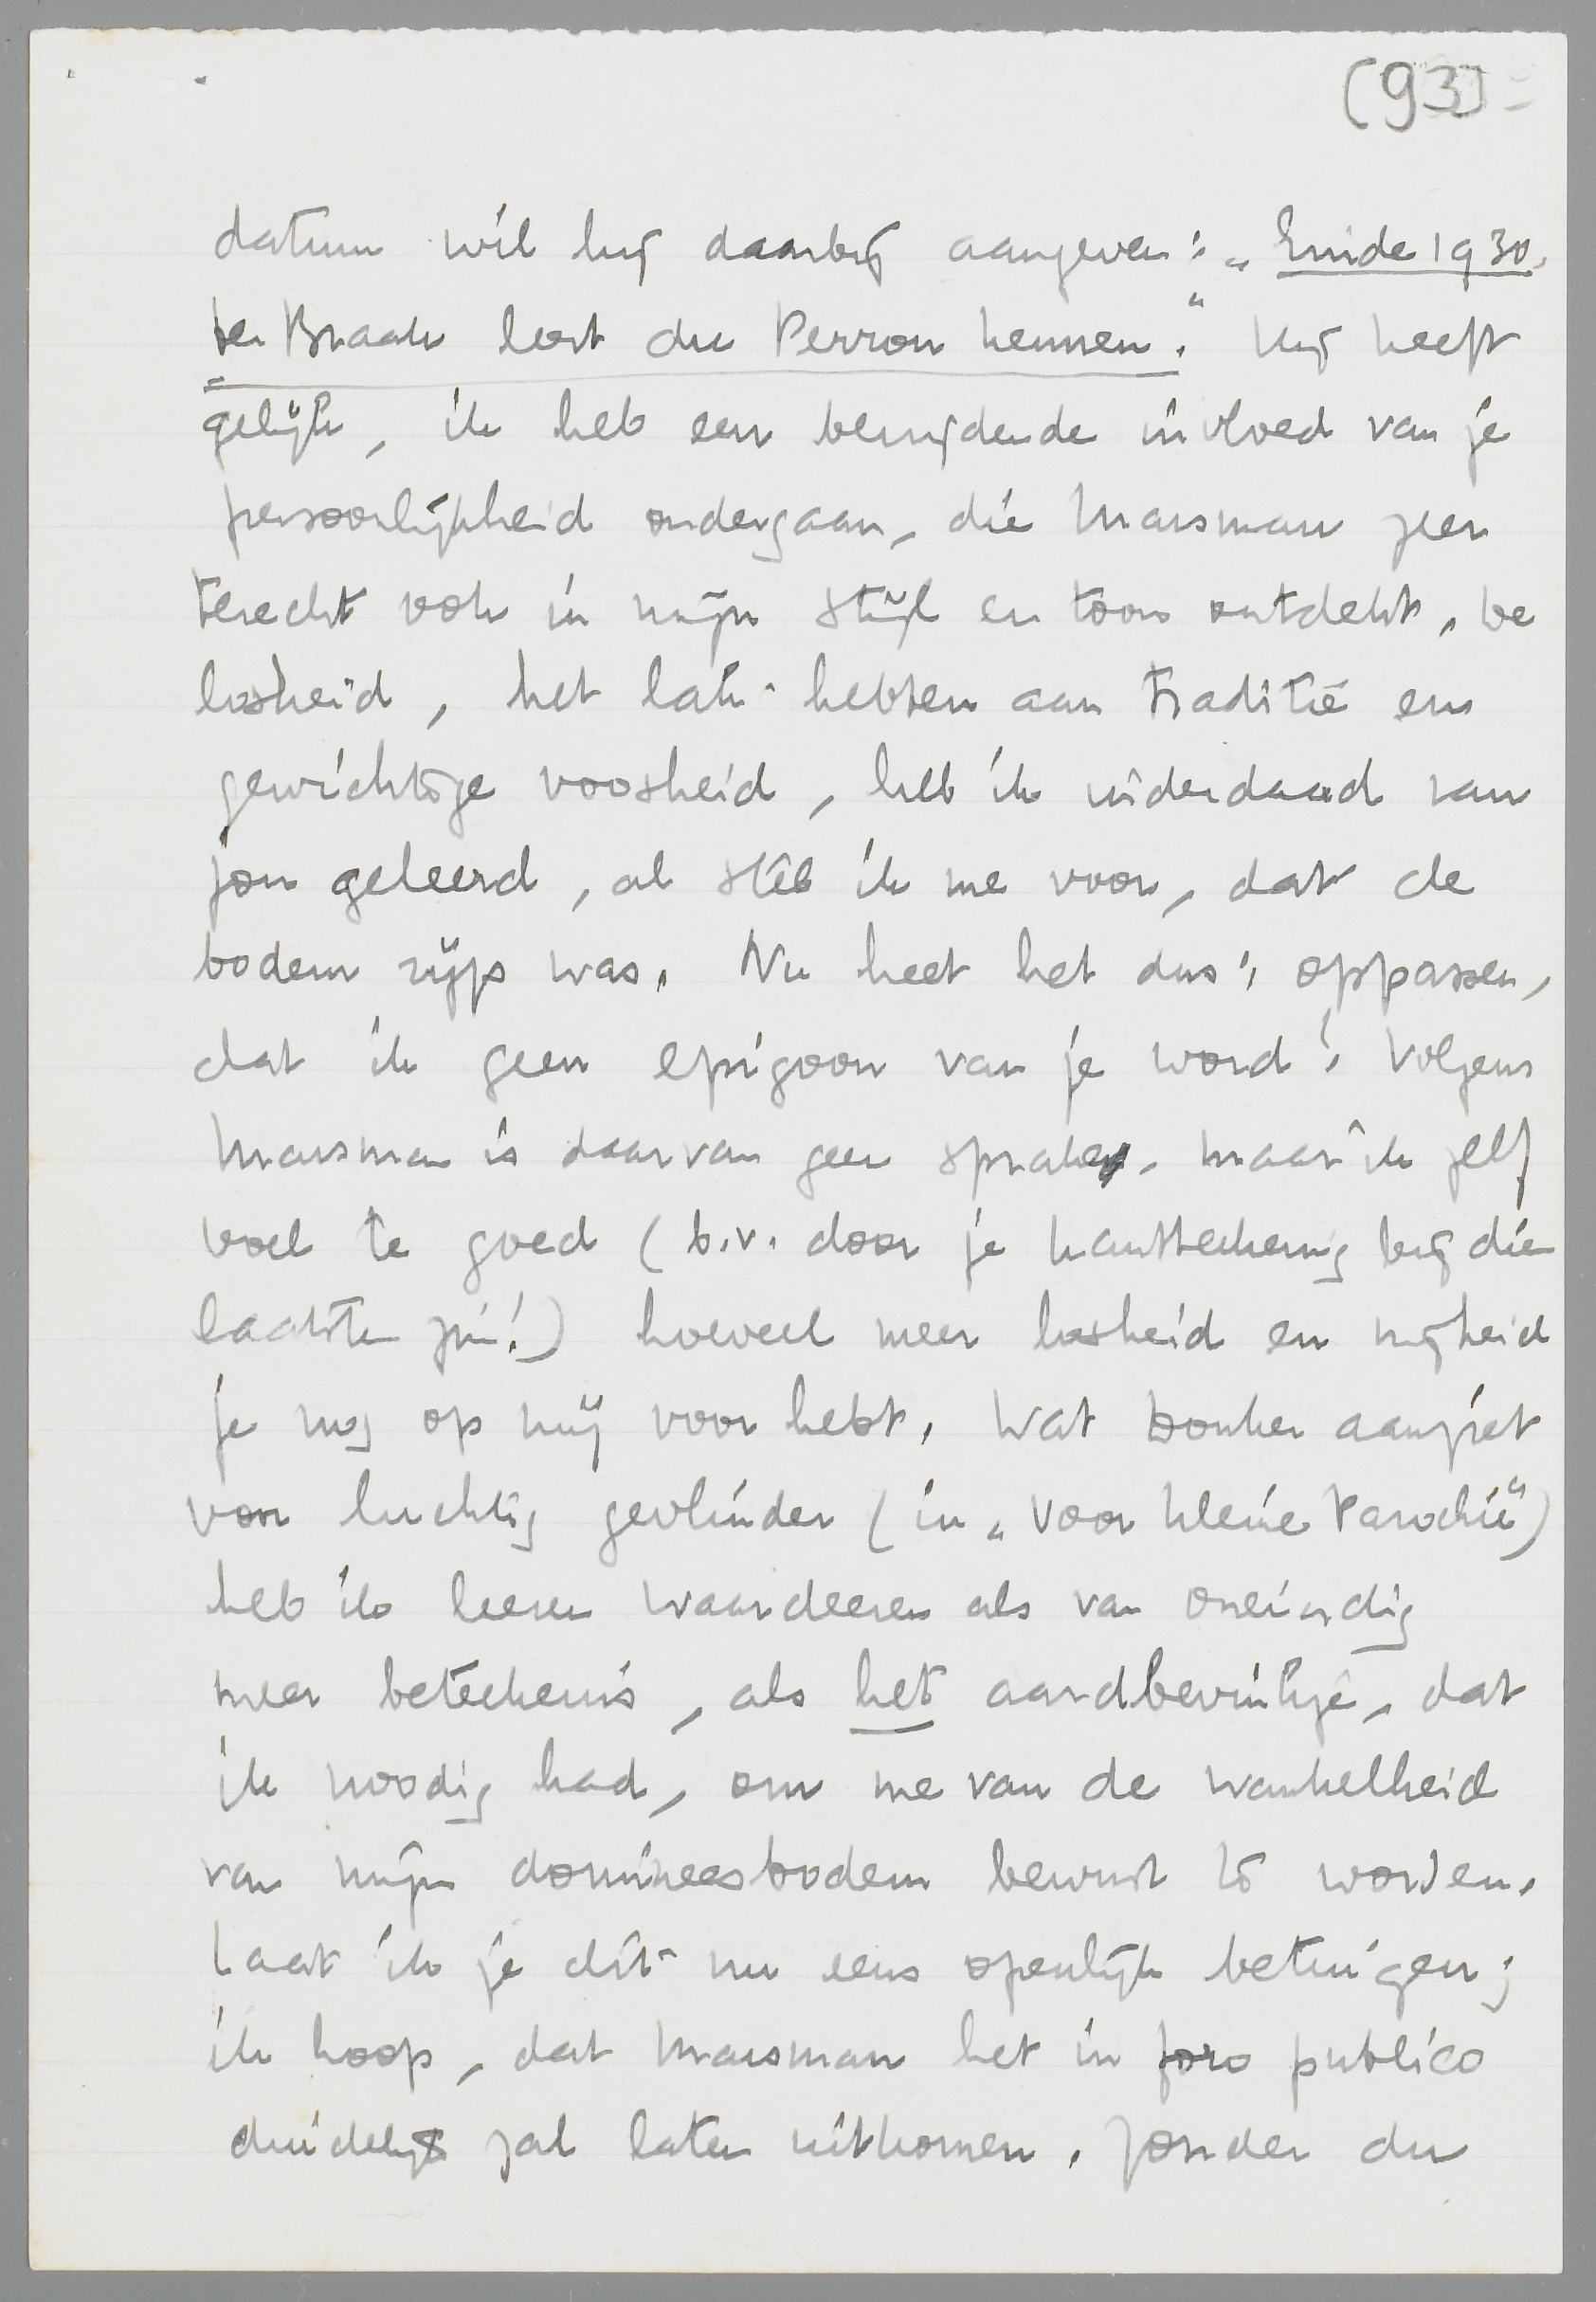 (93)
datum wil hij daarbij aangeven: „Einde 1930.
ter Braak leert du Perron kennen." Hij heeft
gelijk, ik heb een bevrijdende invloed van je
persoonlijkheid ondergaan, die Marsman zeer
terecht ook in mijn stijl en toon ontdekt. De
losheid, het lak-hebben aan traditie en
gewichtige voosheid, heb ik inderdaad van
jou geleerd, al stel ik me voor, dat de
bodem rijp was. Nu heet het dus: oppassen,
dat ik geen epigoon van je word! Volgens
Marsman is daarvan geen sprake. Maar ik zelf
voel te goed (b.v. door je kantteekening bij die
laatste zin!) hoeveel meer losheid en vrijheid
je nog op mij voor hebt. Wat Donker aanziet
voor luchtig gevlinder (in „Voor kleine Parochie")
heb ik leeren waardeeren als van oneindig
meer beteekenis, als het aardbevinkje, dat
ik noodig had, om me van de wankelheid
van mijn domineesbodem bewust te worden.
Laat ik je dit nu eens openlijk betuigen;
ik hoop, dat Marsman het in foro publico
duidelijk zal laten uitkomen. Zonder du